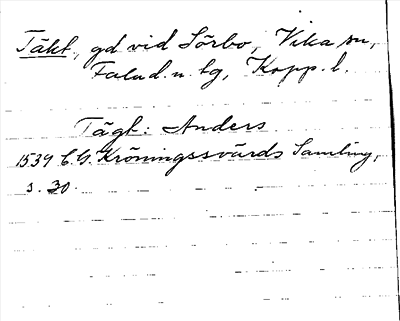 Täkt, gd vid Sörbo, Vika sn,
Falud. n. tg, Kopp. l.
Tägt: Anders
1539 C. G. Kröningssvärds Samling,
s. 30.